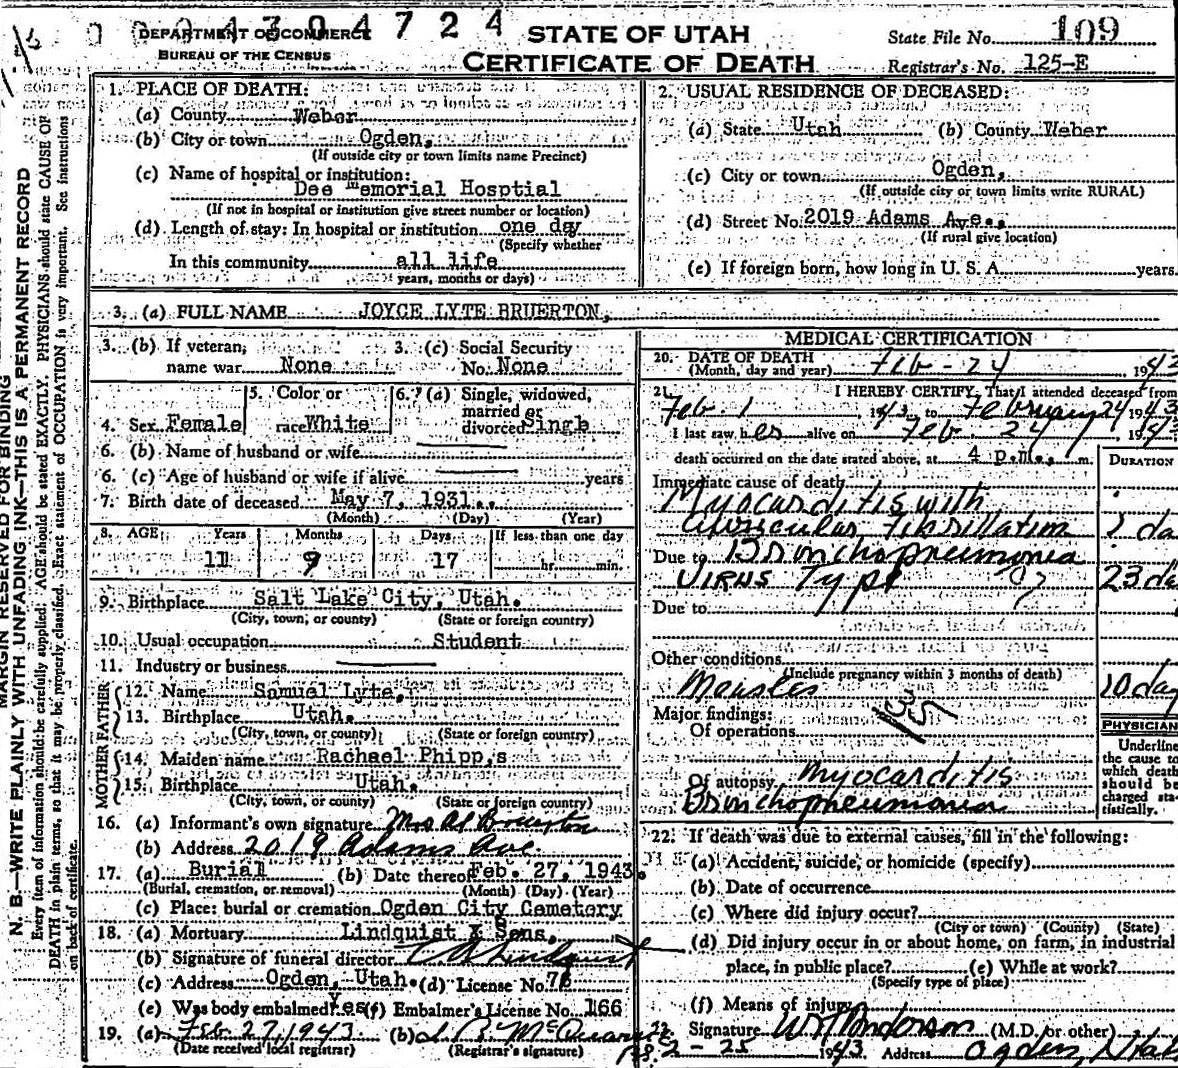 0004304724
DEPARTMENT OF COMMERCE
BUREAU OF THE CENSUS
STATE OF UTAH
CERTIFICATE OF DEATH
State File No. 109
Registrar's No. 125-E
MARGIN RESERVED FOR BINDING
N. B.—WRITE PLAINLY WITH UNFADING INK—THIS IS A PERMANENT RECORD
Every item of information should be carefully supplied. AGE should be stated EXACTLY. PHYSICIANS should state CAUSE OF
DEATH in plain terms, so that it may be properly classified. Exact statement of OCCUPATION is very important. See instructions
on back of certificate.
1. PLACE OF DEATH:
(a) County Weber
(b) City or town Ogden,
(If outside city or town limits name Precinct)
(c) Name of hospital or institution:
Dee Memorial Hosptial
(If not in hospital or institution give street number or location)
(d) Length of stay: In hospital or institution one day
(Specify whether
In this community all life
years, months or days)
2. USUAL RESIDENCE OF DECEASED:
(a) State Utah (b) County Weber
(c) City or town Ogden,
(If outside city or town limits write RURAL)
(d) Street No. 2019 Adams Ave.,
(If rural give location)
(e) If foreign born, how long in U. S. A. years.
3. (a) FULL NAME JOYCE LYTE BRUERTON,
3. (b) If veteran, name war None
3. (c) Social Security No. None
4. Sex Female
5. Color or race White
6. (a) Single, widowed, married or divorced Singl
6. (b) Name of husband or wife
6. (c) Age of husband or wife if alive years
7. Birth date of deceased May 7, 1931.
(Month) (Day) (Year)
8. AGE: Years Months Days If less than one day
11 9 17 hr. min.
9. Birthplace Salt Lake City, Utah.
(City, town, or county) (State or foreign country)
10. Usual occupation Student
11. Industry or business
FATHER
12. Name Samuel Lyte,
13. Birthplace Utah.
(City, town, or county) (State or foreign country)
MOTHER
14. Maiden name Rachael Phipp,s
15. Birthplace Utah.
(City, town, or county) (State or foreign country)
16. (a) Informant's own signature Mrs Al Bruerton
(b) Address 2019 Adams Ave.
17. (a) Burial (b) Date thereof Feb. 27, 1943.
(Burial, cremation, or removal) (Month) (Day) (Year)
(c) Place: burial or cremation Ogden City Cemetory
18. (a) Mortuary Lindquist & Sons,
(b) Signature of funeral director Lindquist
(c) Address Ogden, Utah. (d) License No. 76
(e) Was body embalmed? Yes (f) Embalmer's License No. 166
19. (a) Feb 27, 1943 (b)
(Date received local registrar) (Registrar's signature)
MEDICAL CERTIFICATION
20. DATE OF DEATH Feb - 24, 1943
(Month, day and year)
21. I HEREBY CERTIFY, That I attended deceased from
Feb. 1, 1943, to February 24 1943
I last saw her alive on Feb. 24, 1943
death occurred on the date stated above, at 4 p.m. m.
DURATION
Immediate cause of death
Myocarditis with
auricular fibrillation 1 da
Due to Bronchopneumonia
Virus Type (?) 23 da
Due to
Other conditions
(Include pregnancy within 3 months of death)
Measles 10 day
Major findings:
Of operations
Of autopsy Myocarditis
Bronchopneumonia
PHYSICIAN
Underline
the cause to
which death
should be
charged sta-
tistically.
22. If death was due to external causes, fill in the following:
(a) Accident, suicide, or homicide (specify)
(b) Date of occurrence
(c) Where did injury occur?
(City or town) (County) (State)
(d) Did injury occur in or about home, on farm, in industrial
place, in public place? (e) While at work?
(Specify type of place)
(f) Means of injury
23. Signature Anderson (M.D. or other)
2-25 1943 Address Ogden, Utah